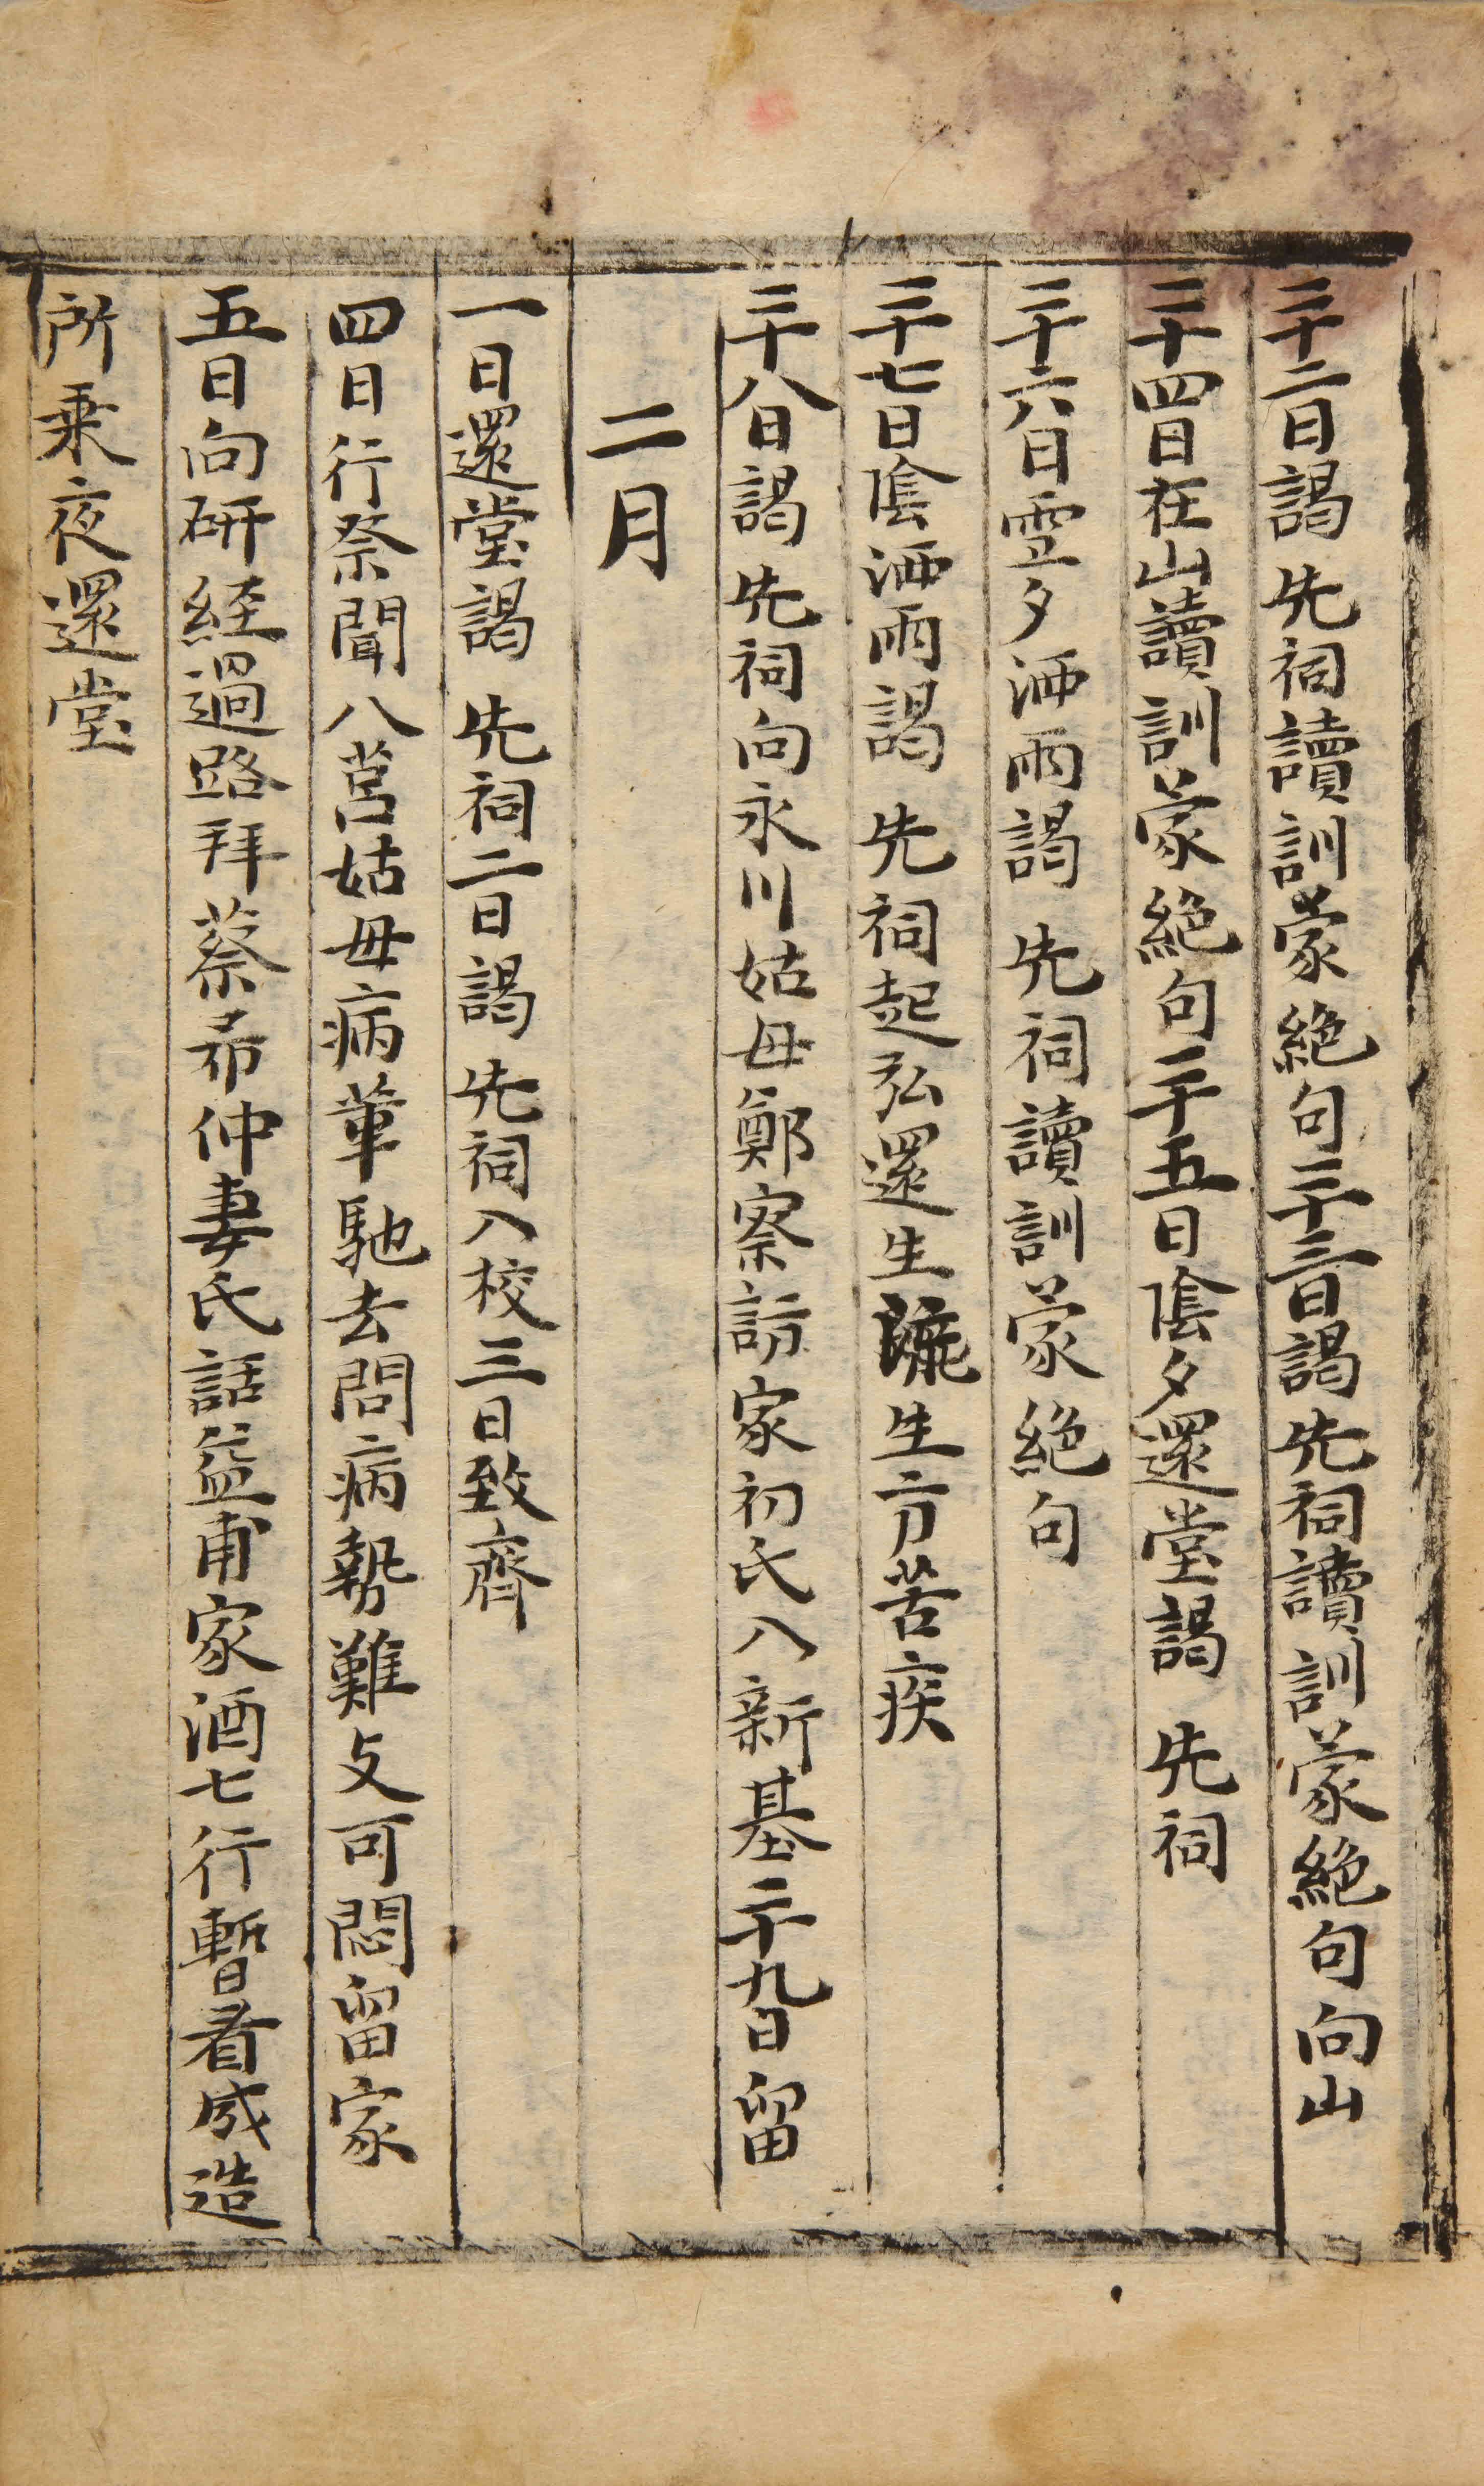 二十二日謁 先祠讀訓蒙絶句二十三日謁 先祠讀訓蒙絶句向山
二十四日在山讀訓蒙絶句二十五日陰夕還堂謁 先祠
二十六日雲夕洒雨謁 先祠讀訓蒙絶句
二十七日陰洒雨謁 先祠起弘還生生方苦疾
二十八日謁 先祠向永川姑母鄭察訪家初氏入新基二十九日留
二月
一日還堂謁 先祠二日謁 先祠入校三日致齊
四日行祭聞八莒姑母病革馳去問病勢難支可悶留家
五日向硏経過路拜蔡希仲妻氏話益甫家酒七行暫看成造
所乘夜還堂